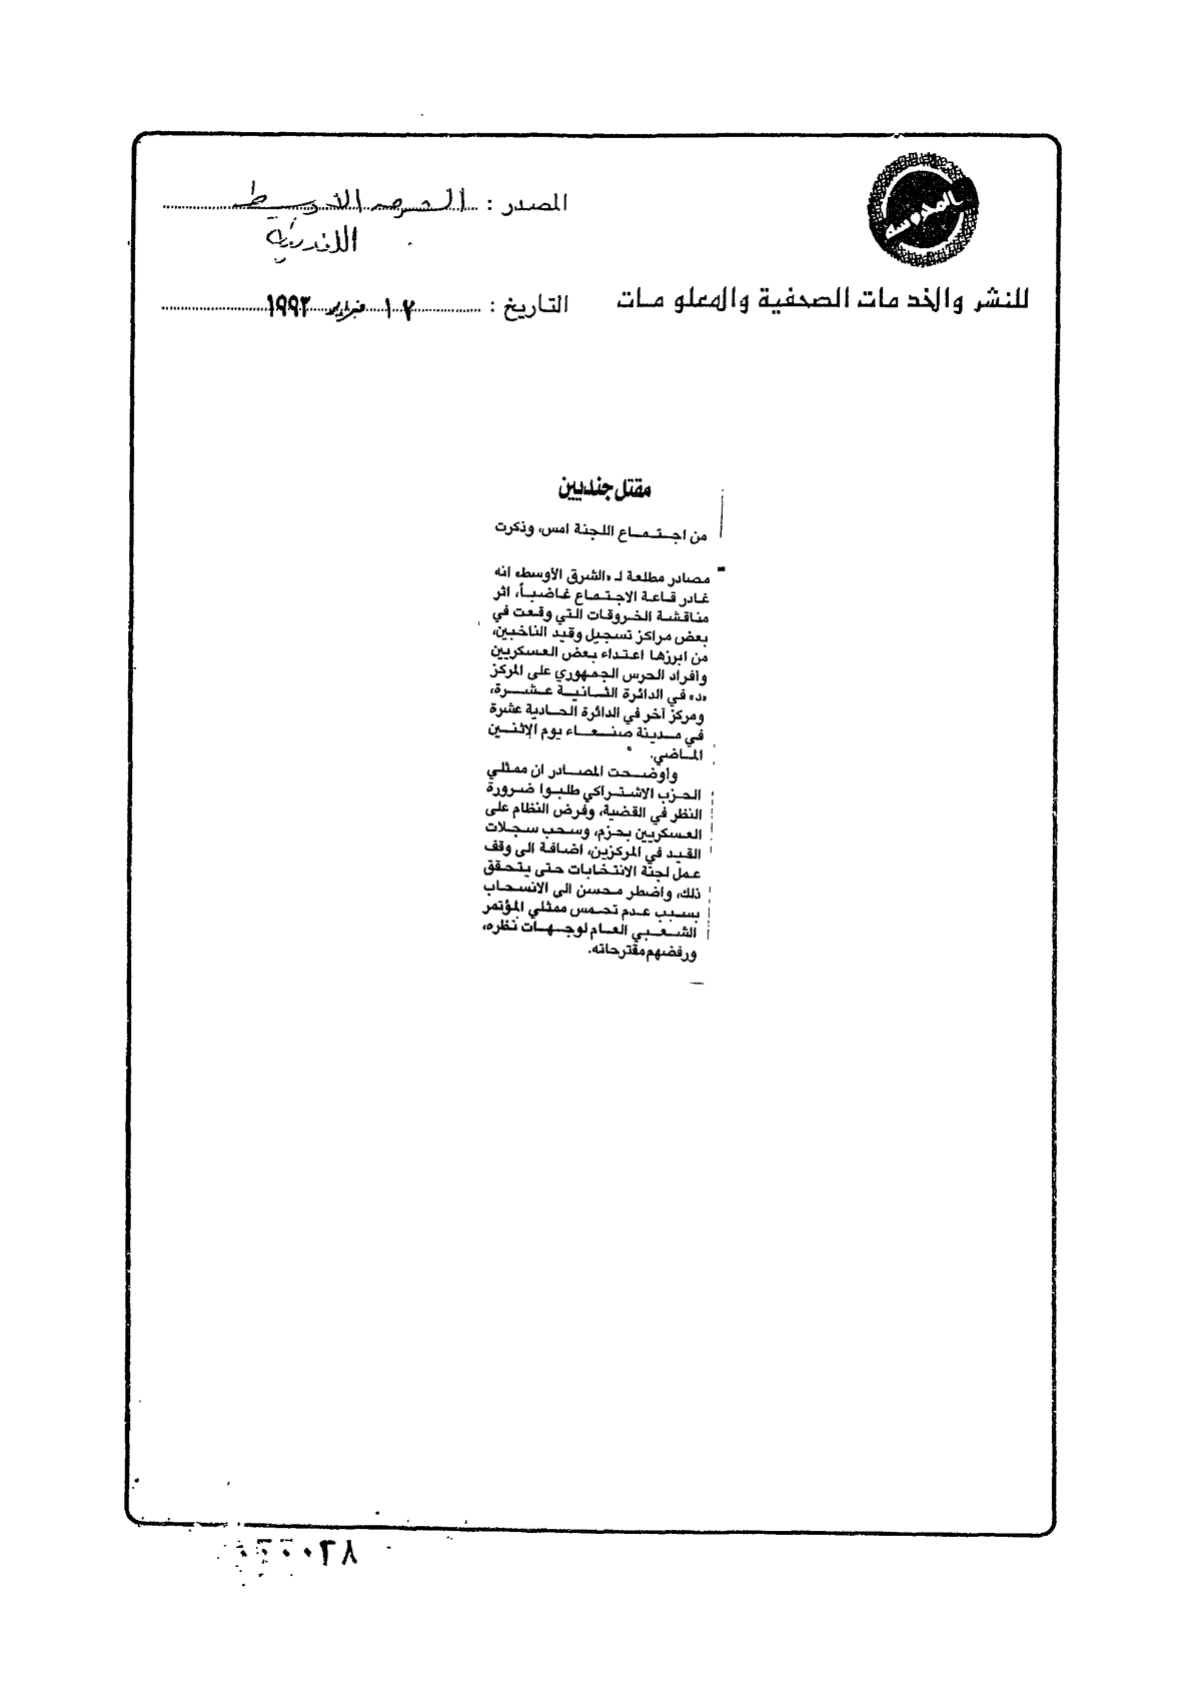 المحروسة
للنشر والخدمات الصحفية والمعلومات
المصدر : الشرق الأوسط
اللندنية
التاريخ : ١٧ فبراير ١٩٩٣
مقتل جنديين
من اجتماع اللجنة امس، وذكرت
مصادر مطلعة لـ «الشرق الأوسط» انه
غادر قاعة الاجتماع غاضباً، اثر
مناقشة الخروقات التي وقعت في
بعض مراكز تسجيل وقيد الناخبين،
من ابرزها اعتداء بعض العسكريين
وافراد الحرس الجمهوري على المركز
«د» في الدائرة الثانية عشرة،
ومركز آخر في الدائرة الحادية عشرة
في مدينة صنعاء يوم الإثنين
الماضي.
وأوضحت المصادر ان ممثلي
الحزب الاشتراكي طلبوا ضرورة
النظر في القضية، وفرض النظام على
العسكريين بحزم، وسحب سجلات
القيد في المركزين، اضافة الى وقف
عمل لجنة الانتخابات حتى يتحقق
ذلك، واضطر محسن الى الانسحاب
بسبب عدم تحمس ممثلي المؤتمر
الشعبي العام لوجهات نظره،
ورفضهم مقترحاته.